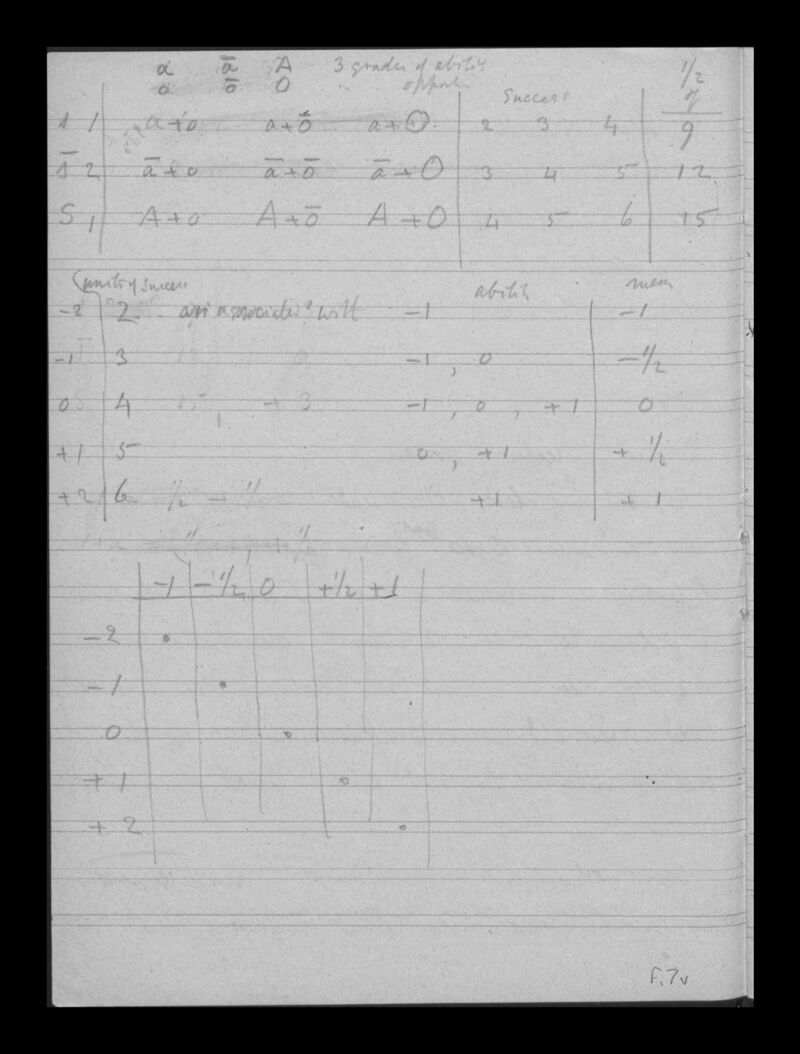 a ā A 3 grades of ability 1/2
o ō O opportu of
Success
1 a+o a+ō a+O 2 3 4 9
2 ā+o ā+ō ā+O 3 4 5 12
S 1 A+o A+ō A+O 4 5 6 15
units of success ability mean
-2 2 are associated with -1 -1
-1 3 -1, 0 -1/2
0 4 -1, 0, +1 0
+1 5 0, +1 +1/2
+2 6 +1 +1
-1 -1/2 0 +1/2 +1
-2
-1
0
+1
+2
F.7v